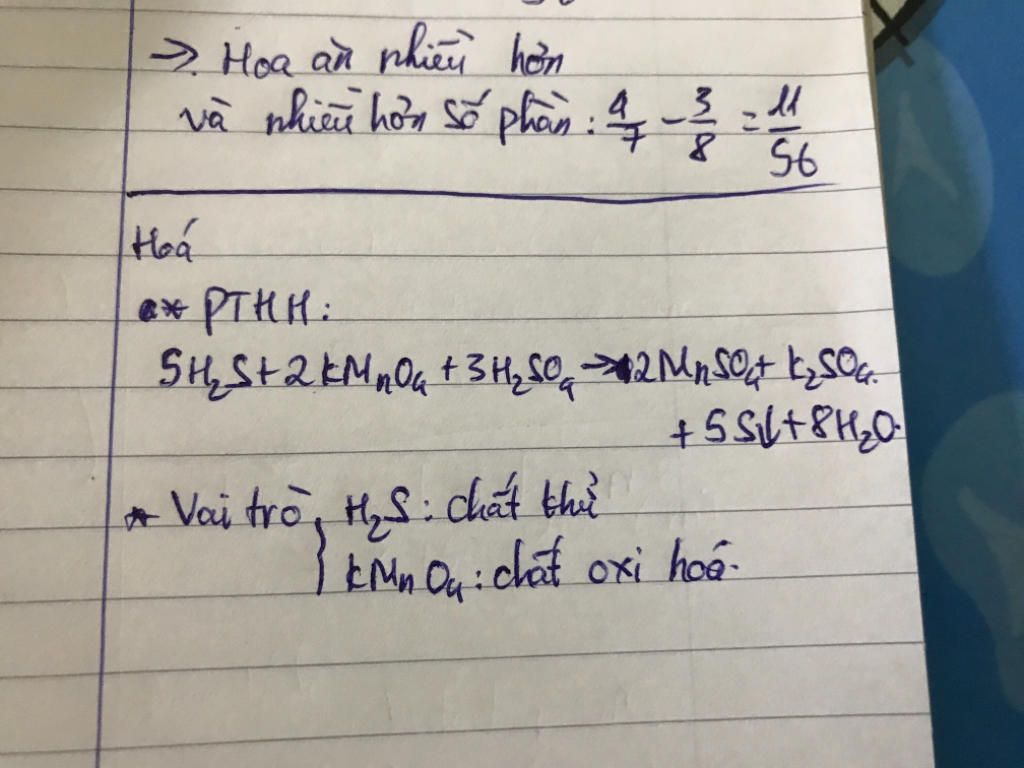 → Hoa ăn nhiều hơn
và nhiều hơn số phần: 4/7 - 3/8 = 11/56
Hoá
* PTHH:
5H₂S + 2KMnO₄ + 3H₂SO₄ → 2MnSO₄ + K₂SO₄
+ 5S↓ + 8H₂O.
* Vai trò { H₂S: chất khử
KMnO₄: chất oxi hoá.